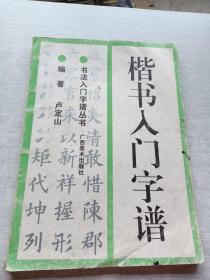 楷书入门字谱
书法入门字谱丛书
广西美术出版社
编著 卢定山
炎清敢惜陳郡
以新祥握形
矩代坤列